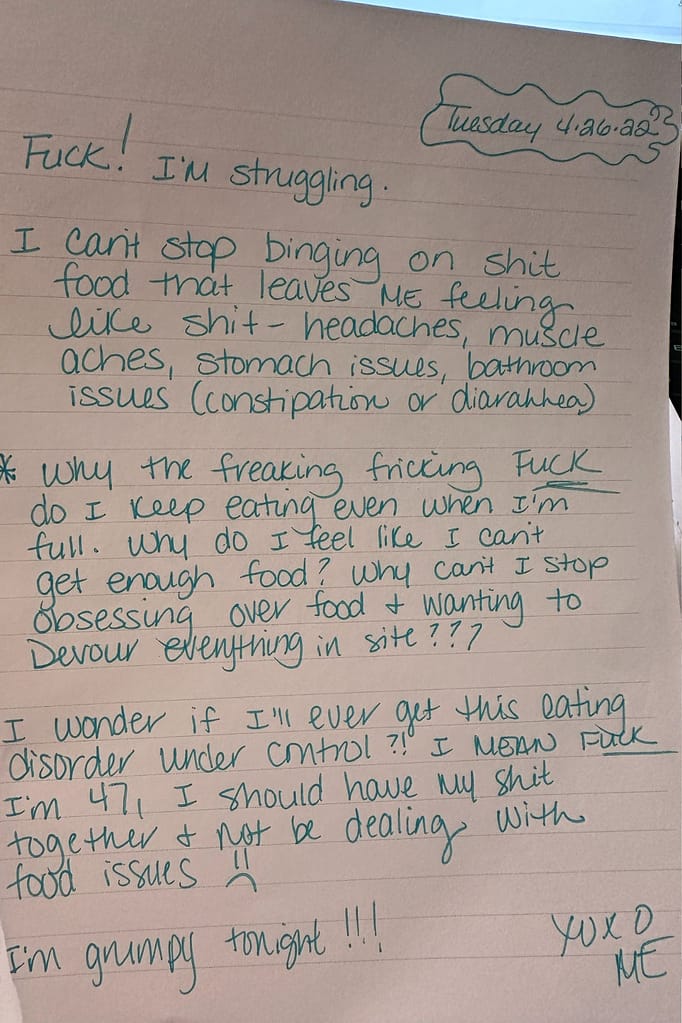 Tuesday 4.26.22
Fuck! I'm struggling.
I can't stop binging on shit
food that leaves ME feeling
like shit - headaches, muscle
aches, stomach issues, bathroom
issues (constipation or diarahhea)
* Why the freaking fricking Fuck
do I keep eating even when I'm
full. Why do I feel like I can't
get enough food? Why can't I stop
obsessing over food & wanting to
Devour everything in site???
I wonder if I'll ever get this eating
disorder under control?! I MEAN Fuck
I'm 47, I should have my shit
together & not be dealing with
food issues !! ☹
I'm grumpy tonight!!!
XOXO
ME